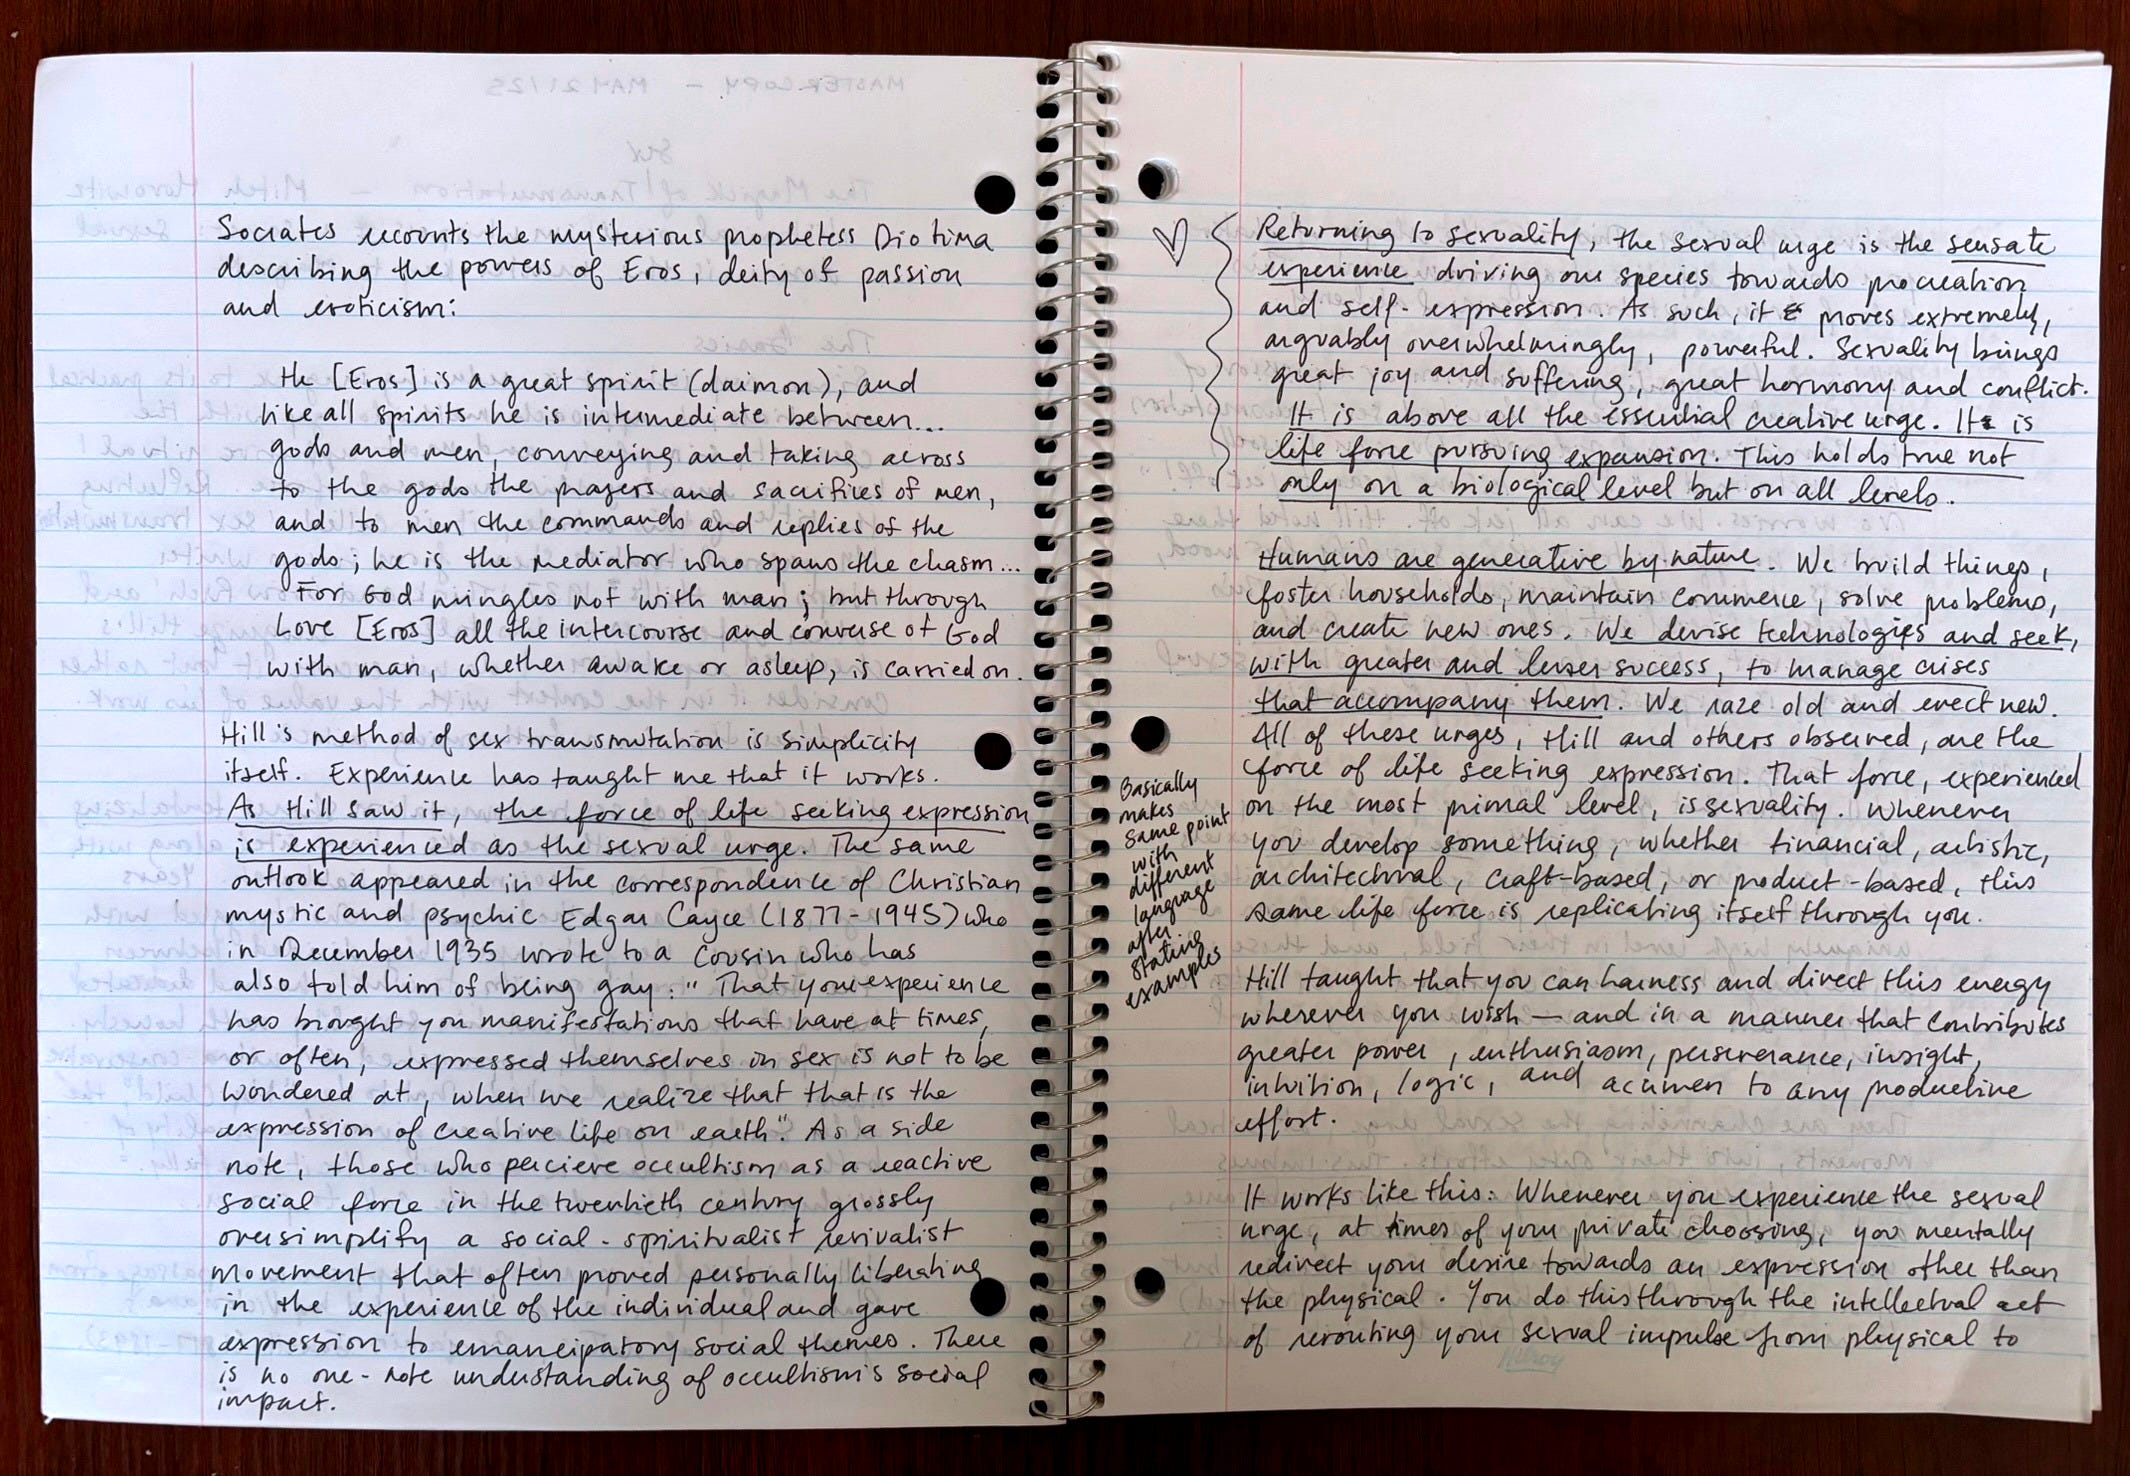 Socrates recounts the mysterious prophetess Diotima
describing the powers of Eros, deity of passion
and eroticism:
He [Eros] is a great spirit (daimon), and
like all spirits he is intermediate between...
gods and men, conveying and taking across
to the gods the prayers and sacrifices of men,
and to men the commands and replies of the
gods; he is the mediator who spans the chasm...
For God mingles not with man; but through
Love [Eros] all the intercourse and converse of God
with man, whether awake or asleep, is carried on.
Hill's method of sex transmutation is simplicity
itself. Experience has taught me that it works.
As Hill saw it, the force of life seeking expression
is experienced as the sexual urge. The same
outlook appeared in the correspondence of Christian
mystic and psychic Edgar Cayce (1877-1945) who
in December 1935 wrote to a cousin who has
also told him of being gay: "That your experience
has brought you manifestations that have at times,
or often, expressed themselves in sex is not to be
wondered at, when we realize that that is the
expression of creative life on earth". As a side
note, those who percieve occultism as a reactive
social force in the twentieth century grossly
oversimplify a social-spiritualist revivalist
movement that often proved personally liberating
in the experience of the individual and gave
expression to emancipatory social themes. There
is no one-note understanding of occultism's social
impact.
Returning to sexuality, the sexual urge is the sensate
experience driving our species towards procreation
and self-expression. As such, it proves extremely,
arguably overwhelmingly, powerful. Sexuality brings
great joy and suffering, great harmony and conflict.
It is above all the essential creative urge. It is
life force pursuing expansion. This holds true not
only on a biological level but on all levels.
Humans are generative by nature. We build things,
foster households, maintain commerce, solve problems,
and create new ones. We devise technologies and seek,
with greater and lesser success, to manage crises
that accompany them. We raze old and erect new.
All of these urges, Hill and others observed, are the
force of life seeking expression. That force, experienced
on the most primal level, is sexuality. Whenever
you develop something, whether financial, artistic,
architechral, craft-based, or product-based, this
same life force is replicating itself through you.
Basically
makes
same point
with
different
language
after
stating
examples
Hill taught that you can harness and direct this energy
wherever you wish — and in a manner that contributes
greater power, enthusiasm, perseverance, insight,
intuition, logic, and acumen to any productive
effort.
It works like this: Whenever you experience the sexual
urge, at times of your private choosing, you mentally
redirect your desire towards an expression other than
the physical. You do this through the intellectual act
of rerouting your sexual impulse from physical to
Hilroy